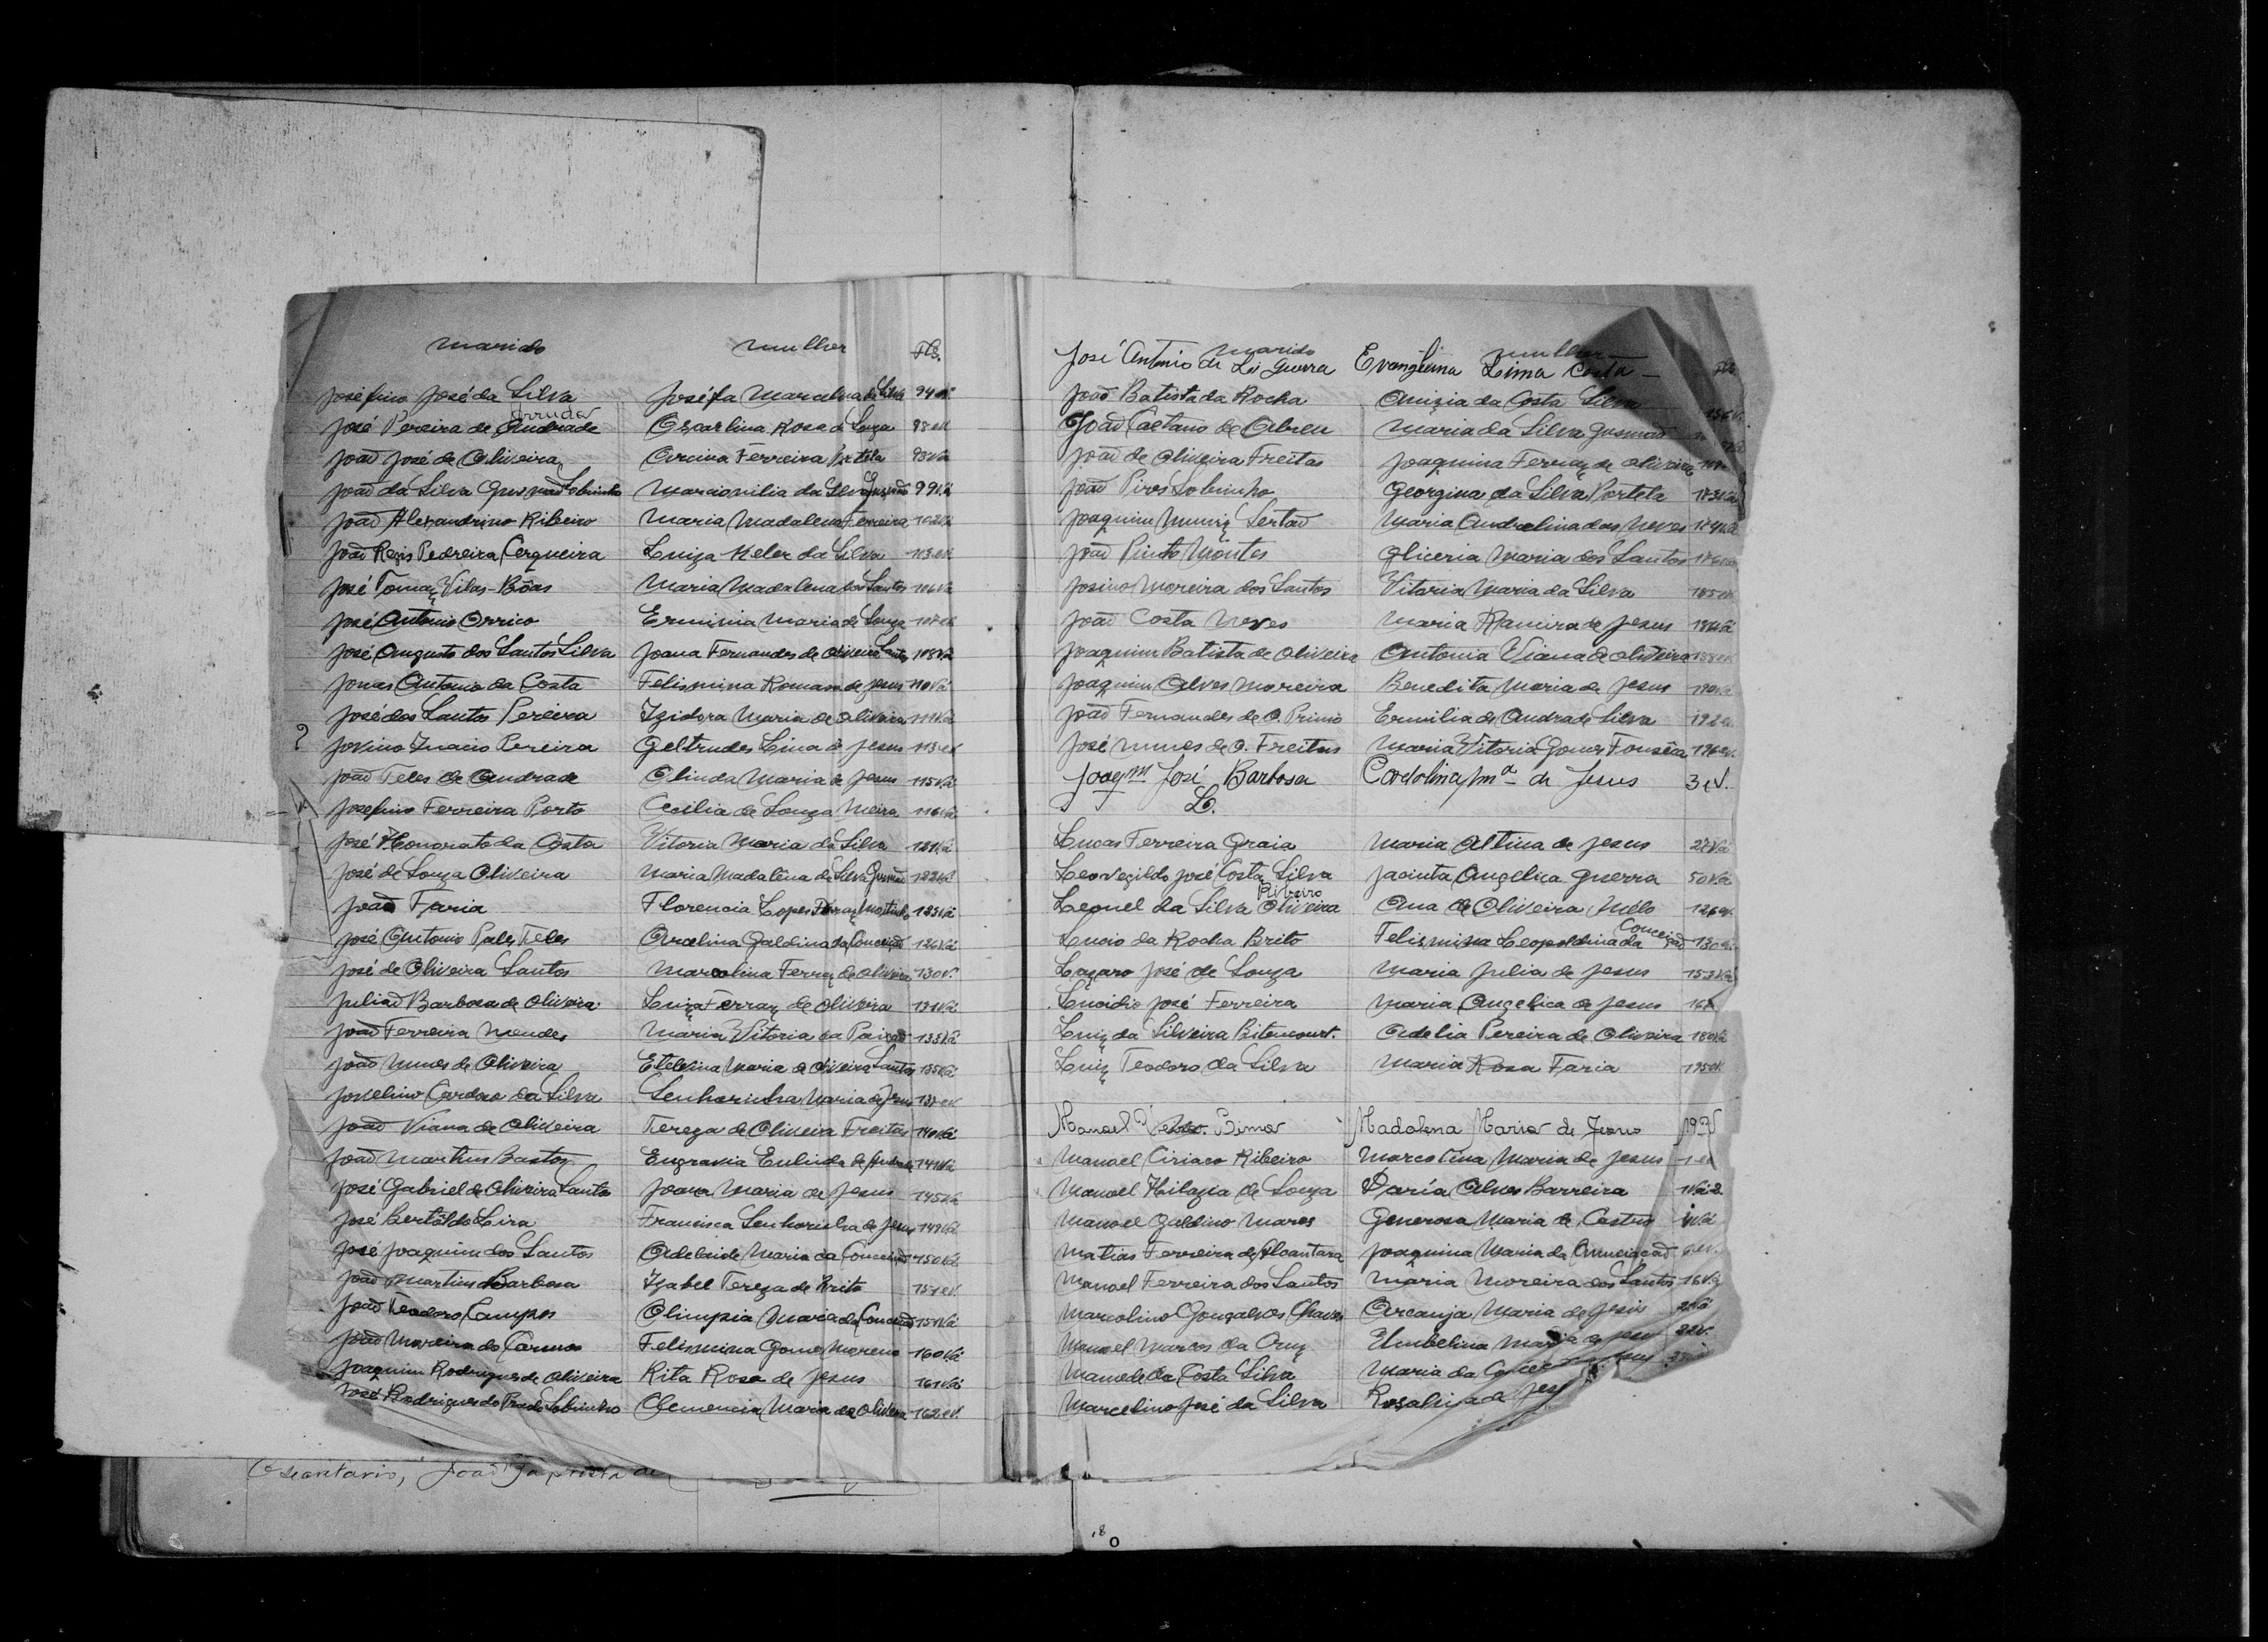 marido mulher Fls.
Josefino José da Silva Joséfa Marcelina da Silva 94
Arruda
José Pereira de Andrade Oscarlina Rosa de Souza
João José de Oliveira Arcina Ferreira Portela 98Vª
João da Silva Gusmão Sobrinho Marcionilia da Silva Gusmão 99Vª
João Alexandrino Ribeiro Maria Madalena Ferreira 102Vª
João Regis Pedreira Cerqueira Luiza Keler da Silva
José Tomaz Vilas-Bôas Maria Madalena dos Santos 106Vª
José Antonio Orrico Erminia Maria de Souza 107
José Augusto dos Santos Silva Joana Fernandes de Oliveira Santos 108Vª
Jonas Antonio da Costa Felismina Romana de Jesus 110Vª
José dos Santos Pereira Izidora Maria de Oliveira 111Vª
? Jovino Inacio Pereira Geltrudes Lina de Jesus 113 eV
João Teles de Andrade Olinda Maria de Jesus 115Vª
Josefino Ferreira Porto Cecilia de Souza Meira 116Vª
José Honorato da Costa Vitoria Maria da Silva 121Vª
José de Souza Oliveira Maria Madalêna da Silva Gusmão 122Vª
João Faria Florencia Lopes Ferraz Moitinho 123Vª
José Antonio Teles Arcelina Galdina da Conceição 126Vª
José de Oliveira Santos Marcolina Ferraz de Oliveira 130V.
Julião Barbosa de Oliveira Luiza Ferraz de Oliveira 131Vª
João Ferreira Mendes Maria Vitoria da Paixão 133Vª
João Nunes de Oliveira Etelvina Maria de Oliveira Santos 135Vª
Joselino Cardoso da Silva Senhorinha Maria de Jesus 137 eV
João Viana de Oliveira Tereza de Oliveira Freitas 140Vª
João Martins Bastos Engracia Eulinda de Andrade 141Vª
José Gabriel de Oliveira Santos Joana Maria de Jesus 145Vª
José Bertôldo Lira Francisca Senhorinha de Jesus 149Vª
José Joaquim dos Santos Adelaide Maria da Conceição 150Vª
João Martins Barbosa Izabel Tereza de Brito 151 eV.
João Teodoro Campos Olimpia Maria da Conceição 151Vª
João Moreira do Carmo Felismina Gomes Moreno 160Vª
Joaquim Rodrigues de Oliveira Rita Rosa de Jesus 161Vª
José Rodrigues do Prado Sobrinho Clemencia Maria de Oliveira 162 eV.
O secretario, João Baptista de
marido mulher Fls
José Antonio de La Guerra Evangelina Lima Costa
João Batista da Rocha Anizia da Costa Silva
João Caetano de Abreu Maria da Silva Gusmão
João de Oliveira Freitas Joaquina Ferraz de Oliveira
João Pires Sobrinho Georgina da Silva Portela 173Vª
Joaquim Muniz Sertão Maria Andrelina das Neves 174Vª
João Pinto Montes Gliceria Maria dos Santos 176
Josino Moreira dos Santos Vitoria Maria da Silva 185 eV
João Costa Neves Maria Ramira de Jesus 186Vª
Joaquim Batista de Oliveira Antonia Viana de Oliveira 188 eV
Joaquim Alves Moreira Benedita Maria de Jesus 190Vª
João Fernandes de O. Primo Ermilia de Andrade Silva 192
José Nunes de O. Freitas Maria Vitoria Gomes Fonsêca 196 eV.
Joaqm José Barbosa Cardolina Mª de Jesus 3 eV.
L.
Lucas Ferreira Graia Maria Altina de Jesus 27Vª
Leovegildo José Costa Silva Jacinta Angelica Guerra 50Vª
Ribeiro
Leonel da Silva Oliveira Ana de Oliveira Mello 126 eV.
Lucio da Rocha Brito Felismina Leopoldina da Conceição 130
Lazaro José de Souza Maria Julia de Jesus 152Vª
Lucidio José Ferreira Maria Angelica de Jesus
Luiz da Silveira Bitencourt. Adelia Pereira de Oliveira 180Vª
Luiz Teodoro da Silva Maria Rosa Faria 195 eV.
Manoel Lima Madalena Maria de Jesus
Manoel Ciriaco Ribeiro Marcolina Maria de Jesus 1 eV
Manoel Hilario de Souza Maria Alves Barreira 1Vª2.
Manoel Galdino Mares Generosa Maria de Castro
Matias Ferreira de Alcantara Joaquina Maria da Anunciação
Manoel Ferreira dos Santos Maria Moreira dos Santos 16Vª
Marcolino Gonçalves Chaves Arcanja Maria de Jesus
Manoel Marcos da Cruz Umbelina Maria de Jesus 22V.
Manoel da Costa Silva Maria da
Marcelino José da Silva Rosalina de Jesus